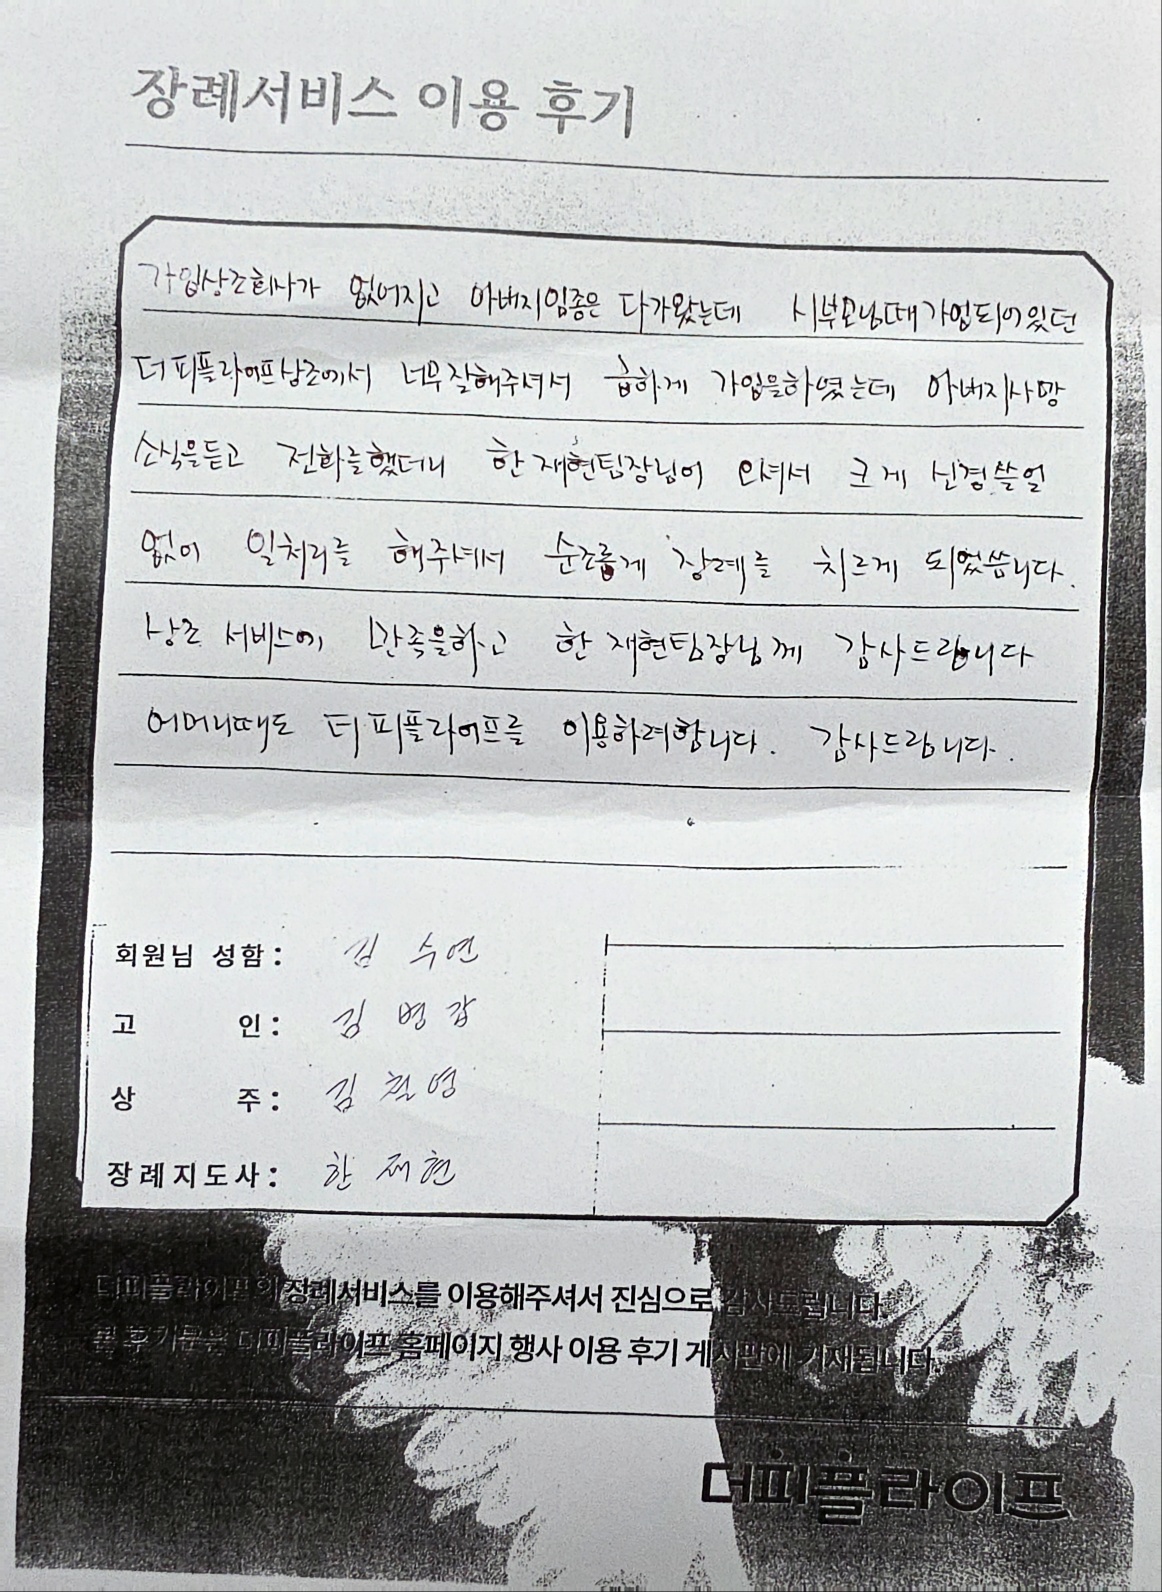 장례서비스 이용 후기
가입상조회사가 없어지고 아버지임종은 다가왔는데 시부모님때가입되어있던
더피플라이프상조에서 너무잘해주셔서 급하게 가입을하였는데 아버지사망
소식을듣고 전화를했더니 한재현팀장님이 오셔서 크게 신경쓸일
없이 일처리를 해주셔서 순조롭게 장례를 치르게 되었씁니다.
상조 서비스에 만족을하고 한재현팀장님께 감사드립니다
어머니때도 더피플라이프를 이용하려합니다. 감사드립니다.
회원님 성함: 김수연
고 인: 김병갑
상 주: 김철영
장례지도사: 한재현
더피플라이프의 장례서비스를 이용해주셔서 진심으로 감사드립니다
본 후기문은 더피플라이프 홈페이지 행사 이용 후기 게시판에 기재됩니다.
더피플라이프